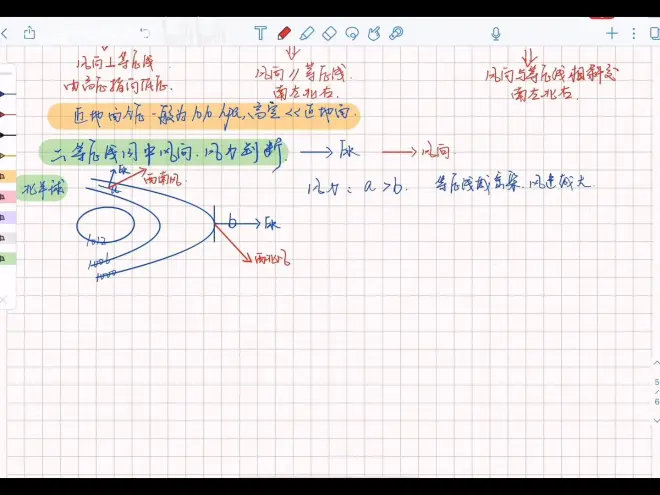 风向⊥等压线
由高压指向低压.
风向∥等压线
南左北右.
风向与等压线相斜交
南左北右.
近地面气压一般为 hpa, 高空<<近地面.
二等压线图中风向、风力判断.
→ F水
→ 风向.
北半球
F水
西南风
a
风力: a>b.
等压线越密集, 风速越大.
b
F水
西北风
1012
1006
1000
5
6